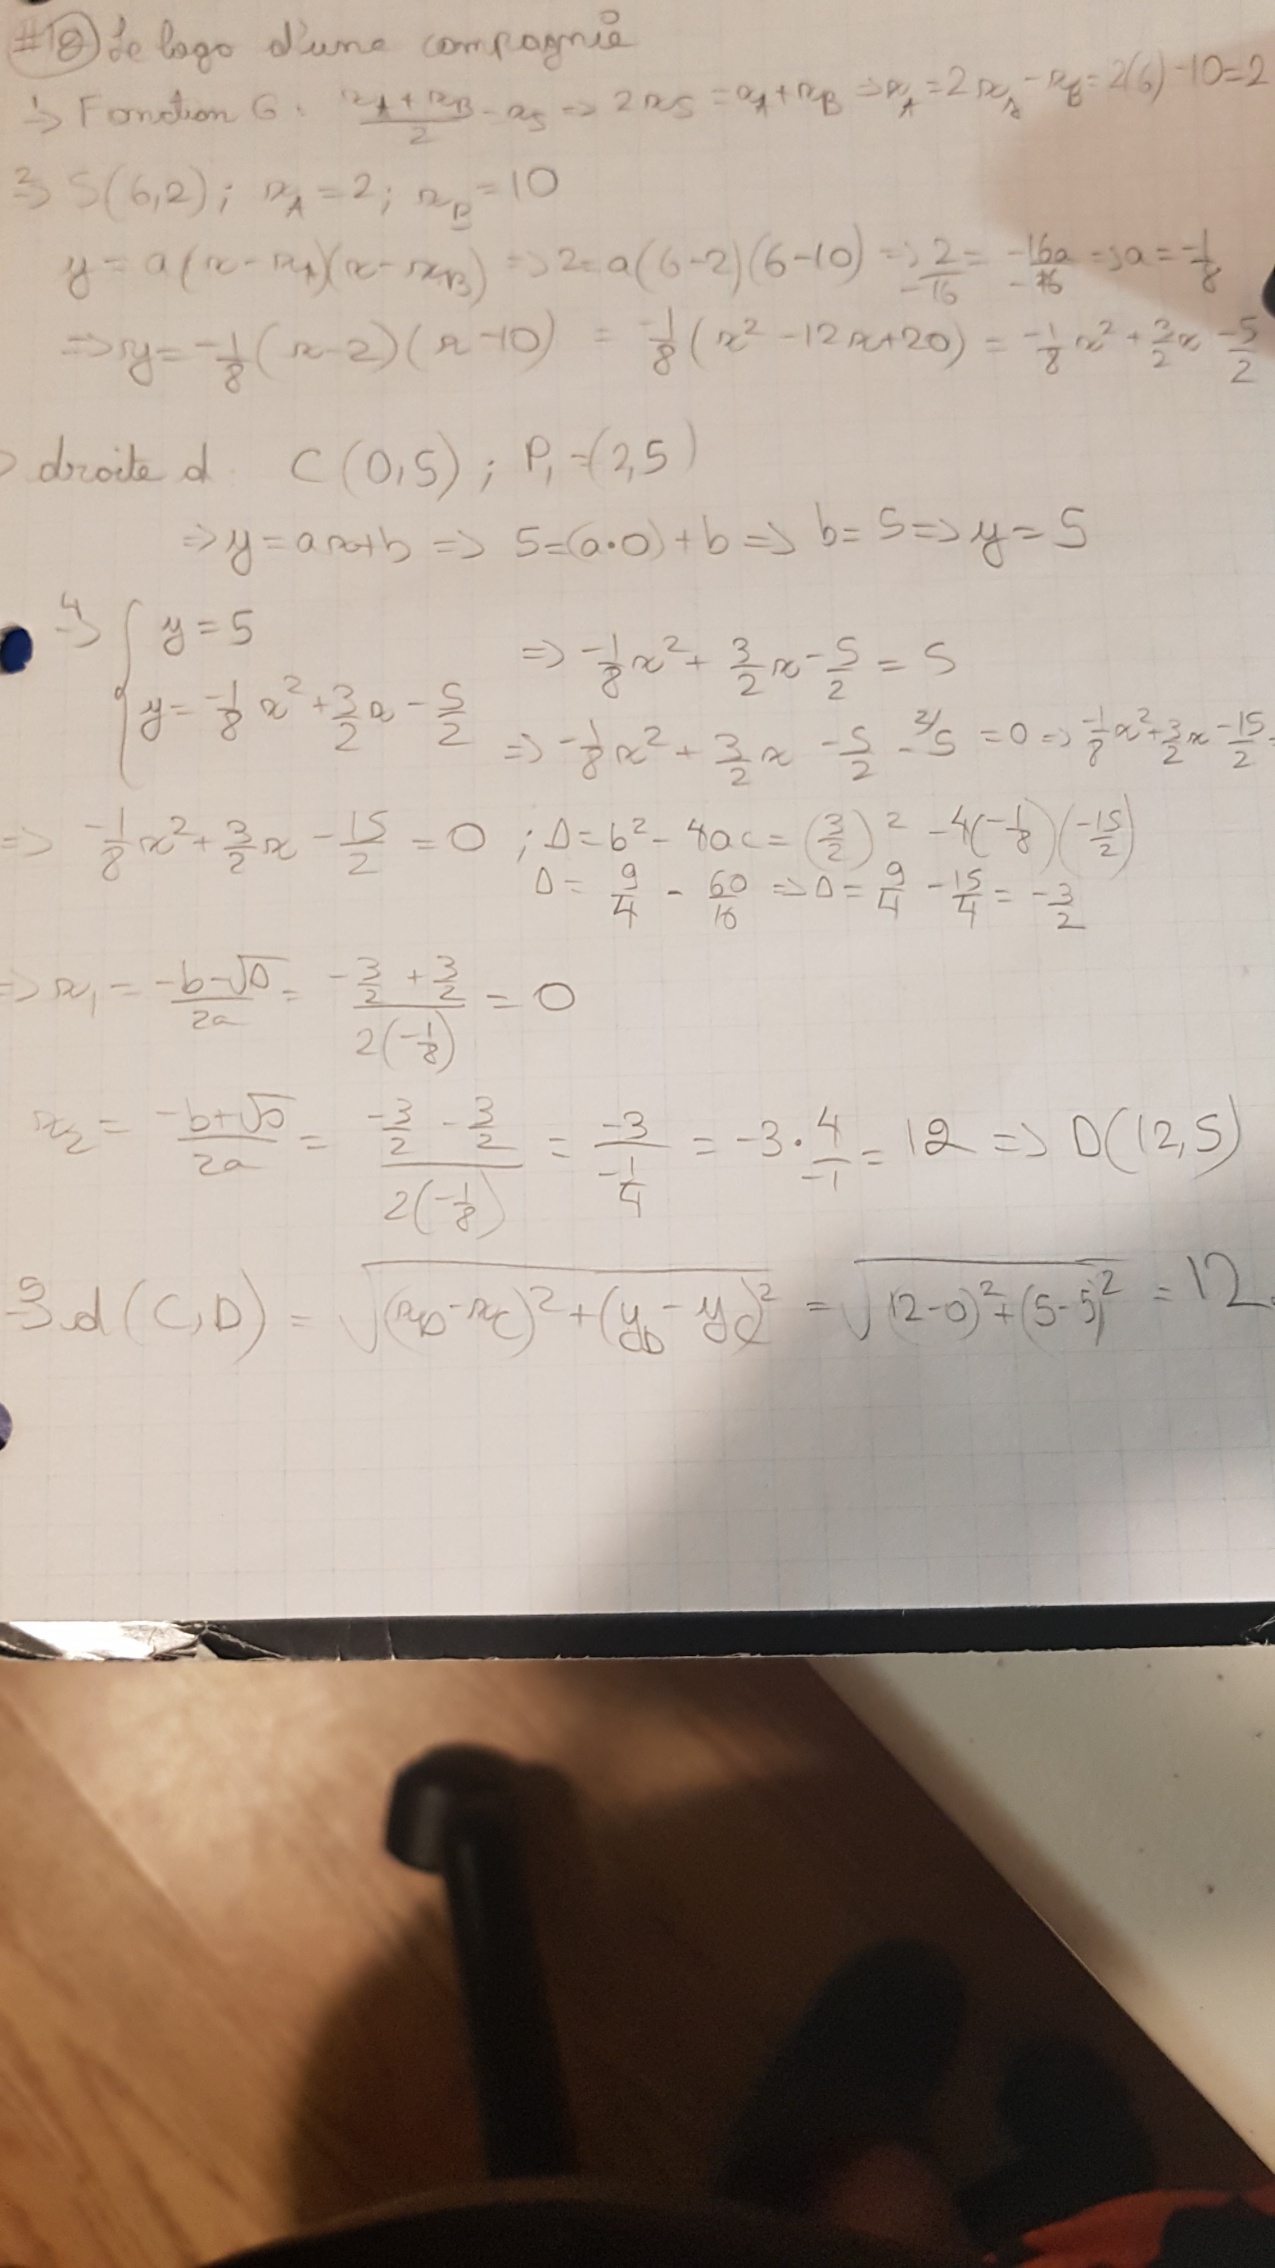 #18 Le logo d'une compagnie
1→ Fonction G : (xA + xB)/2 = xS => 2xS = xA + xB => xA = 2xS - xB = 2(6) - 10 = 2
2→ S(6,2) ; xA = 2 ; xB = 10
y = a(x - xA)(x - xB) => 2 = a(6-2)(6-10) => 2/-16 = -16a/-16 => a = -1/8
=> y = -1/8(x-2)(x-10) = -1/8(x² - 12x + 20) = -1/8x² + 3/2x - 5/2
droite d C(0,5) ; P₁ = (2,5)
=> y = ax + b => 5 = (a·0) + b => b = 5 => y = 5
4→ { y = 5
y = -1/8x² + 3/2x - 5/2
=> -1/8x² + 3/2x - 5/2 = 5
=> -1/8x² + 3/2x - 5/2 - 5 = 0 => -1/8x² + 3/2x - 15/2
=> -1/8x² + 3/2x - 15/2 = 0 ; Δ = b² - 4ac = (3/2)² - 4(-1/8)(-15/2)
Δ = 9/4 - 60/16 => Δ = 9/4 - 15/4 = -3/2
=> x₁ = (-b-√Δ)/2a = (-3/2 + 3/2)/2(-1/8) = 0
x₂ = (-b+√Δ)/2a = (-3/2 - 3/2)/2(-1/8) = -3/(-1/4) = -3·4/-1 = 12 => D(12,5)
5→ d(C,D) = √((xD - xC)² + (yD - yC)²) = √((12-0)² + (5-5)²) = 12